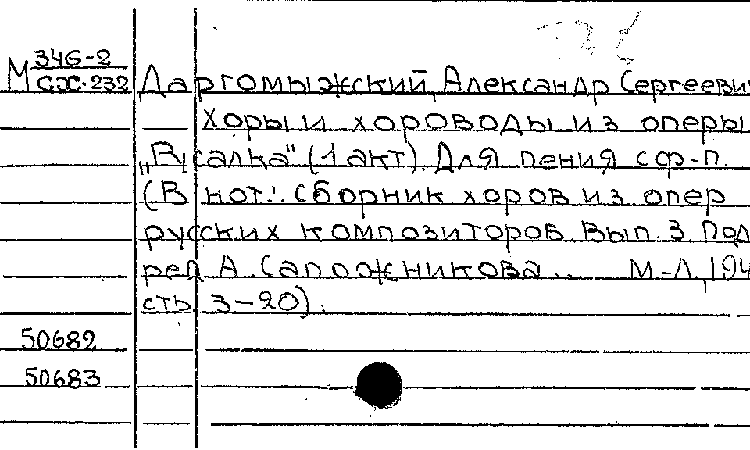 М 346-2
СХ-232
Даргомыжский, Александр Сергеевич
Хоры и хороводы из оперы
„Русалка" (1 акт). Для пения с ф-п.
(В нот.: Сборник хоров из опер
русских композиторов. Вып. 3. Под
ред. А. Сапожникова... М.-Л., 194
стр. 3-20).
50682
50683